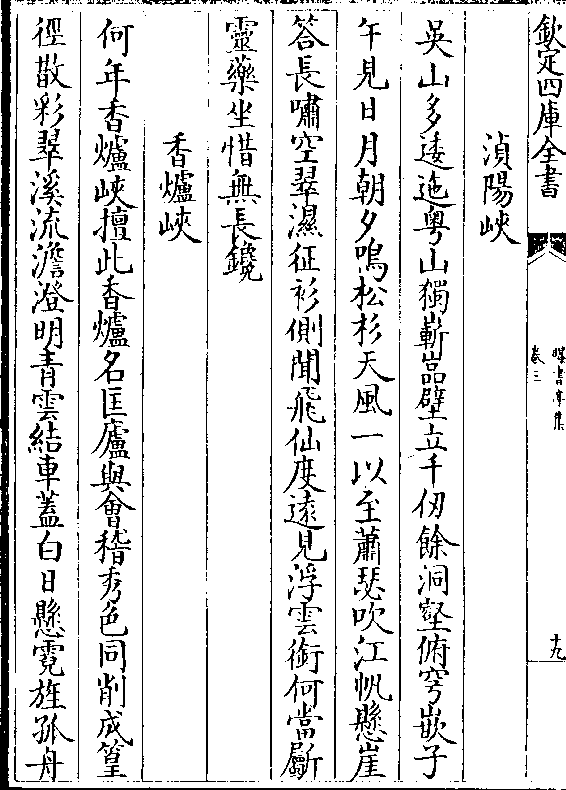 欽定四庫全書
曝書亭集
卷三
十九
湞陽峽
吳山多逶迤粵山獨嶄嵓壁立千仞餘洞壑俯穹嵌子
午見日月朝夕鳴松杉天風一以至蕭瑟吹江帆懸崖
答長嘯空翠濕征衫側聞飛仙度遠見浮雲銜何當斸
靈藥坐惜無長鑱
香爐峽
何年香爐峽擅此香爐名匡廬與會稽秀色同削成篁
徑散彩翠溪流澹澄明青雲結車蓋白日懸霓旌孤舟